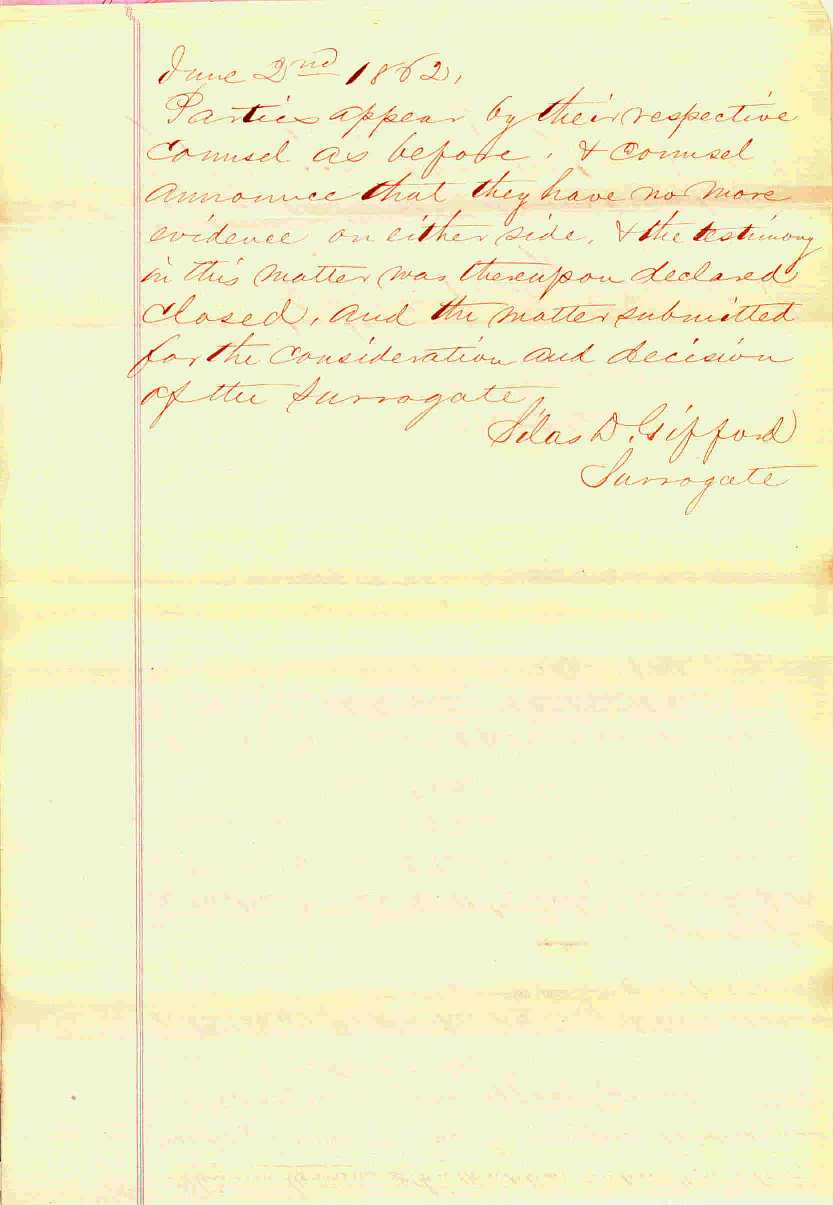 June 2nd 1862,
Parties appear by their respective
Counsel as before. & Counsel
announce that they have no more
evidence on either side. & the testimony
in this matter was thereupon declared
closed, and the matter submitted
for the consideration and decision
of the Surrogate
Silas D. Gifford
Surrogate